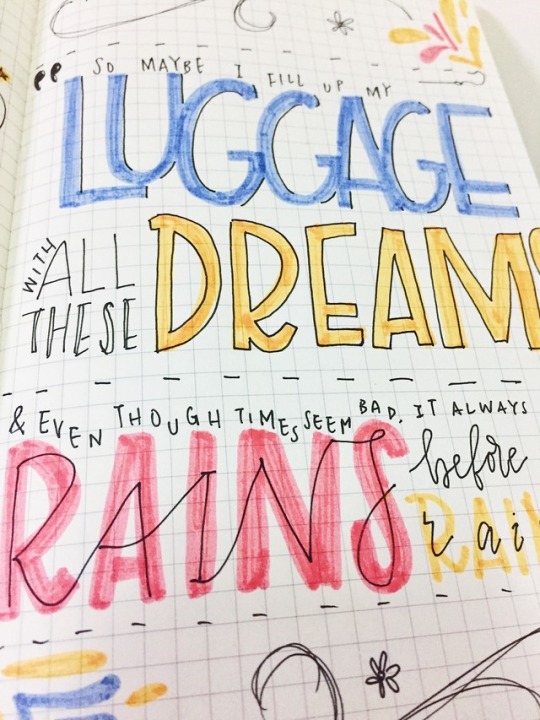 “ SO MAYBE I FILL UP MY
LUGGAGE
WITH ALL THESE DREAMS
& EVEN THOUGH TIMES SEEM BAD, IT ALWAYS
RAINS before
RAI
rai